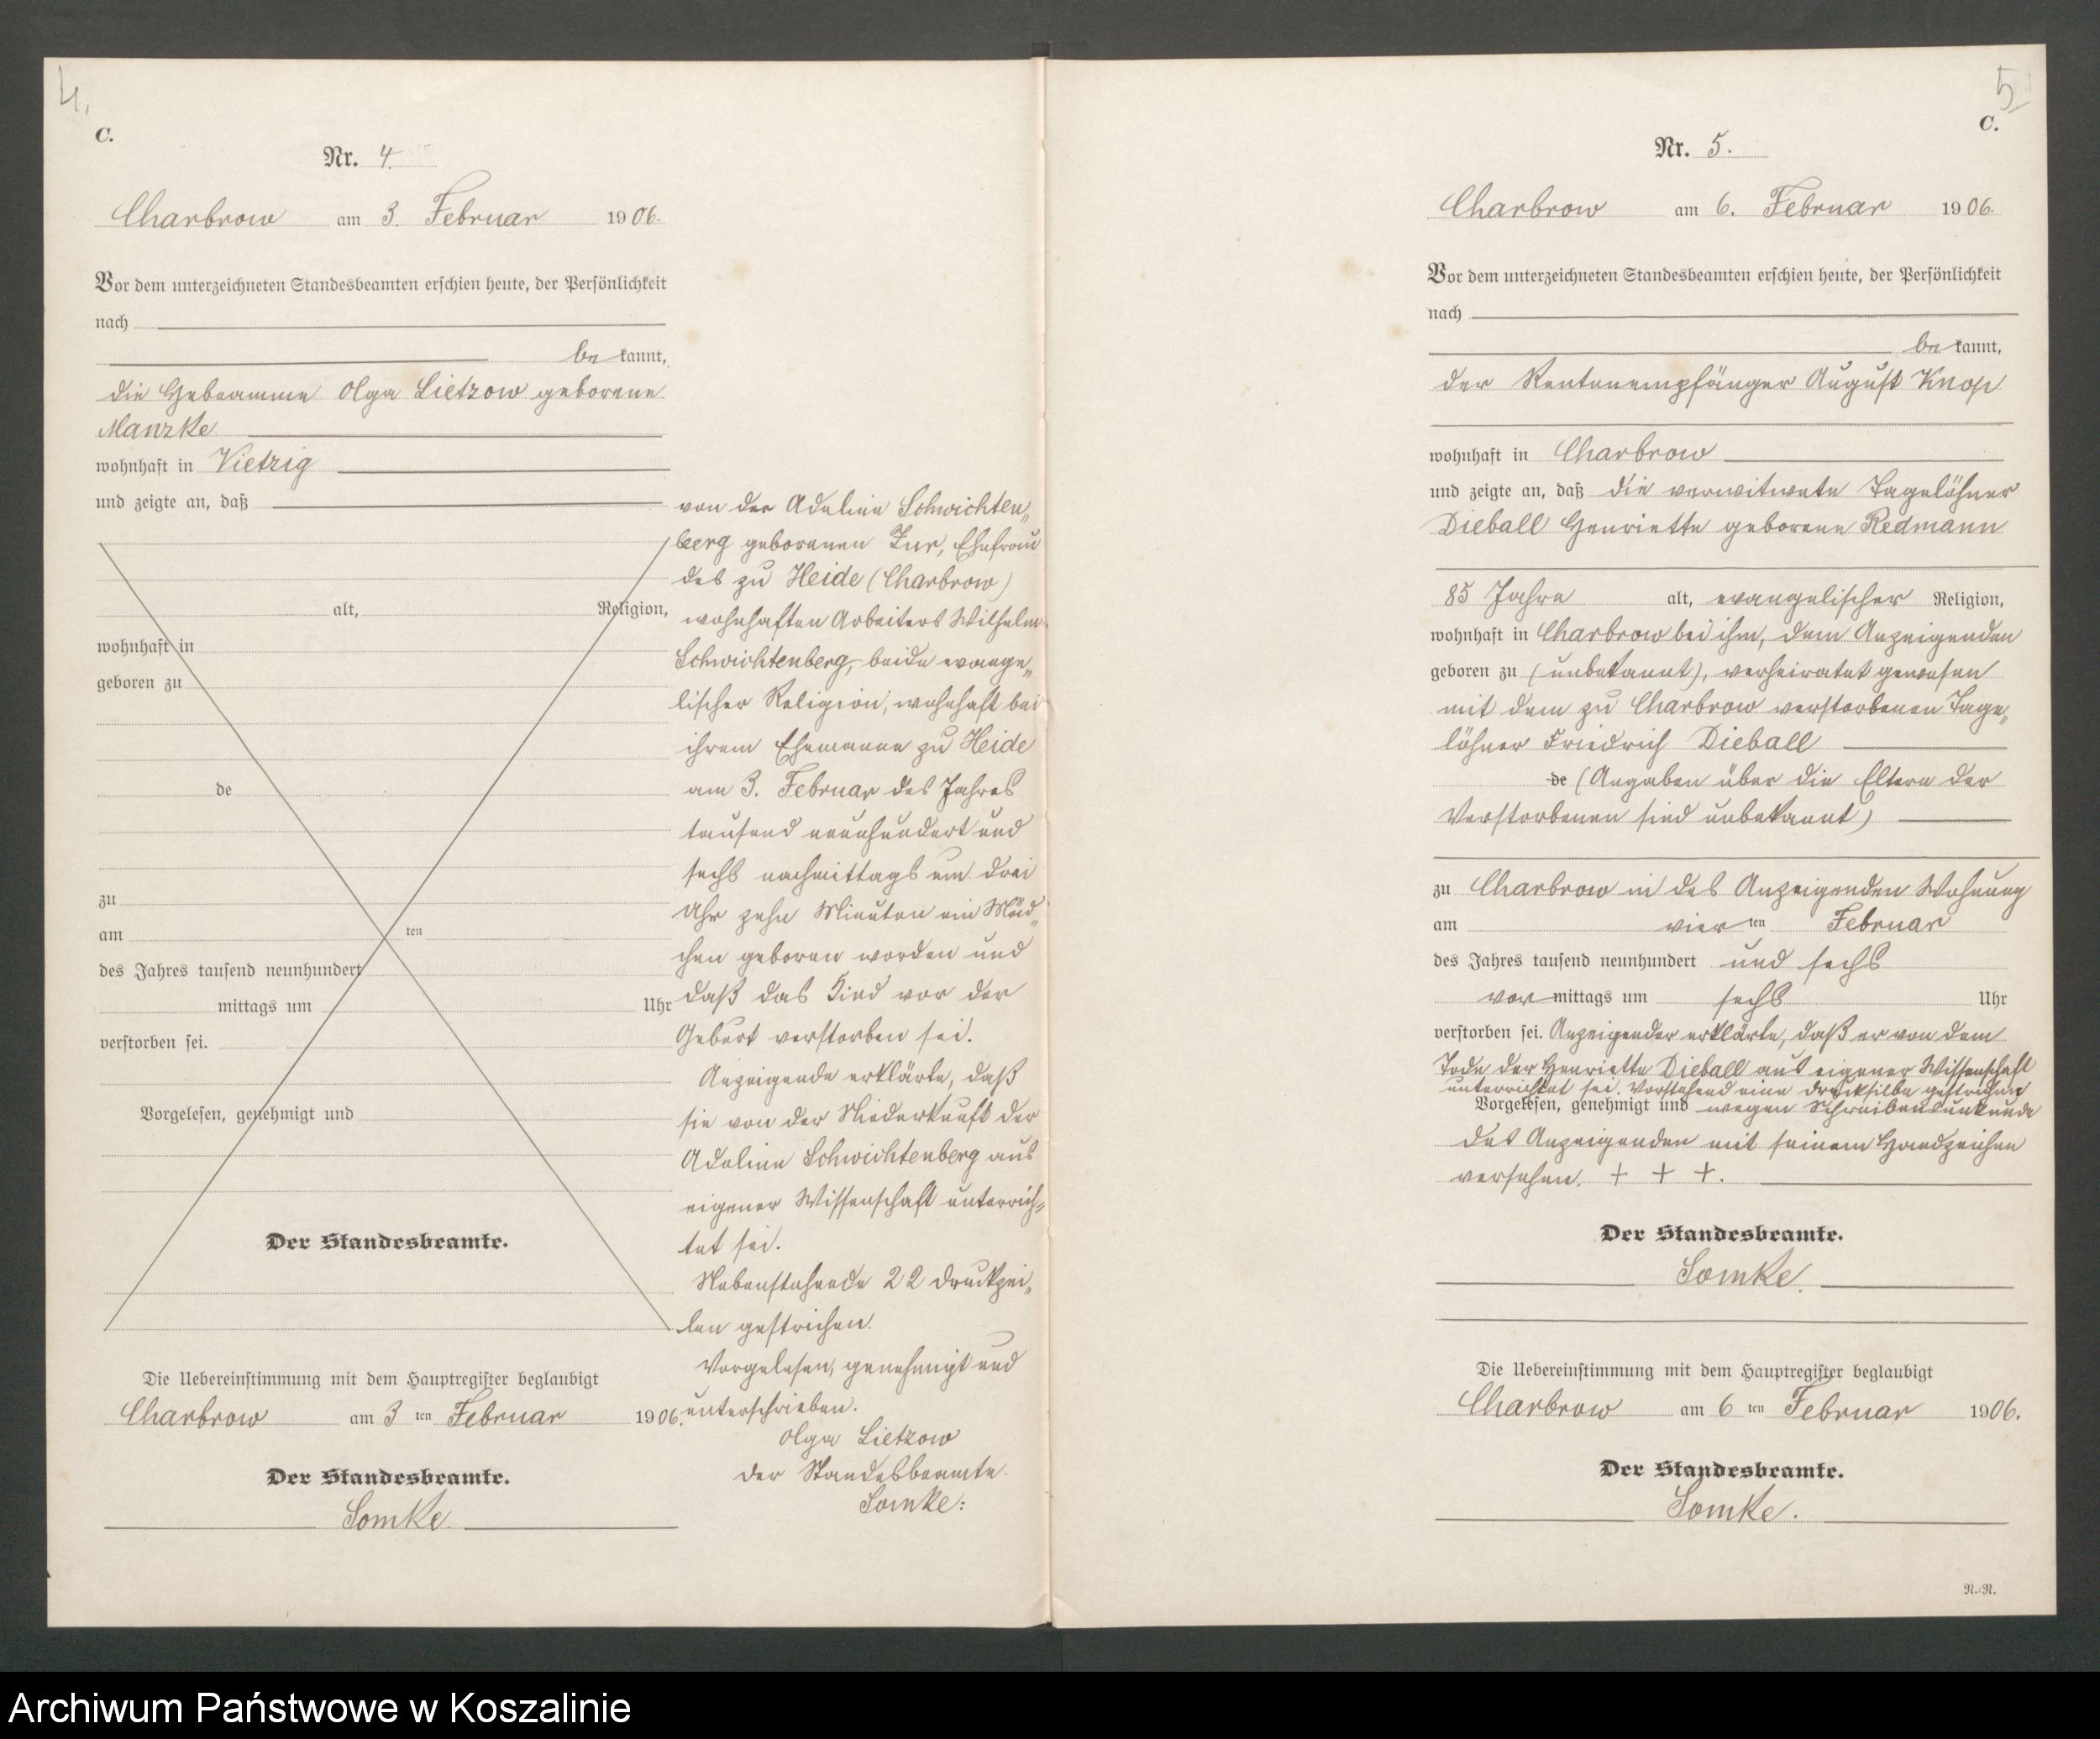 4.
C.
Nr. 4.
Charbrow am 3. Februar 1906.
Vor dem unterzeichneten Standesbeamten erschien heute, der Persönlichkeit
nach
be kannt,
die Hebeamme Olga Lietzow geborene
Manzke
wohnhaft in Vietzig
und zeigte an, daß
alt, Religion,
wohnhaft in
geboren zu
de
zu
am ten
des Jahres tausend neunhundert
mittags um Uhr
verstorben sei.
Vorgelesen, genehmigt und
Der Standesbeamte.
von der Adeline Schwichten„
berg geborenen Zur, Ehefrau
des zu Heide (Charbrow)
wohnhaften Arbeiters Wilhelm
Schwichtenberg, beide evange„
lischer Religion, wohnhaft bei
ihrem Ehemanne zu Heide
am 3. Februar des Jahres
tausend neunhundert und
sechs nachmittags um drei
Uhr zehn Minuten ein Mäd„
chen geboren worden und
daß das Kind vor der
Geburt verstorben sei.
Anzeigende erklärte, daß
sie von der Niederkunft der
Adeline Schwichtenberg aus
eigener Wissenschaft unterrich„
tet sei.
Nebenstehende 22 Druckzei„
len gestrichen.
Vorgelesen, genehmigt und
unterschrieben.
Olga Lietzow
der Standesbeamte.
Somke:
Die Uebereinstimmung mit dem Hauptregister beglaubigt
Charbrow am 3 ten Februar 1906.
Der Standesbeamte.
Somke.
5
C.
Nr. 5.
Charbrow am 6. Februar 1906.
Vor dem unterzeichneten Standesbeamten erschien heute, der Persönlichkeit
nach
be kannt,
der Rentenempfänger August Knop
wohnhaft in Charbrow
und zeigte an, daß die verwitwete Tagelöhner
Dieball Henriette geborene Redmann
85 Jahre alt, evangelischer Religion,
wohnhaft in Charbrow bei ihm, dem Anzeigenden
geboren zu (unbekannt), verheiratet gewesen
mit dem zu Charbrow verstorbenen Tage„
löhner Friedrich Dieball
de (Angaben über die Eltern der
Verstorbenen sind unbekannt)
zu Charbrow in des Anzeigenden Wohnung
am vier ten Februar
des Jahres tausend neunhundert und sechs
vor mittags um sechs Uhr
verstorben sei. Anzeigender erklärte, daß er von dem
Tode der Henriette Dieball aus eigener Wissenschaft
unterrichtet sei. Vorstehend eine Drucksilbe gestrichen
Vorgelesen, genehmigt und wegen Schreibensunkunde
des Anzeigenden mit seinem Handzeichen
versehen. + + +.
Der Standesbeamte.
Somke.
Die Uebereinstimmung mit dem Hauptregister beglaubigt
Charbrow am 6 ten Februar 1906.
Der Standesbeamte.
Somke.
N.=N.
Archiwum Państwowe w Koszalinie